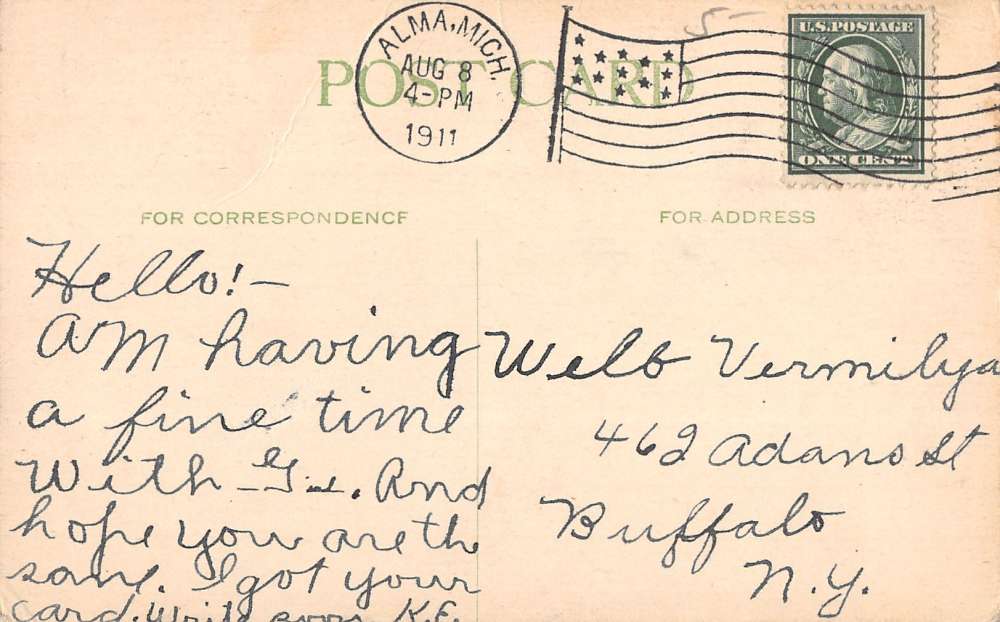 ALMA, MICH.
AUG 8
4-PM
1911
5-
U.S. POSTAGE
ONE CENT
POST CARD
FOR CORRESPONDENCE
FOR ADDRESS
Hello! -
AM having
a fine time
with G. And
hope you are the
same. I got your
card. Write soon K.E.
Welb Vermilya
462 Adams St
Buffalo
N.Y.